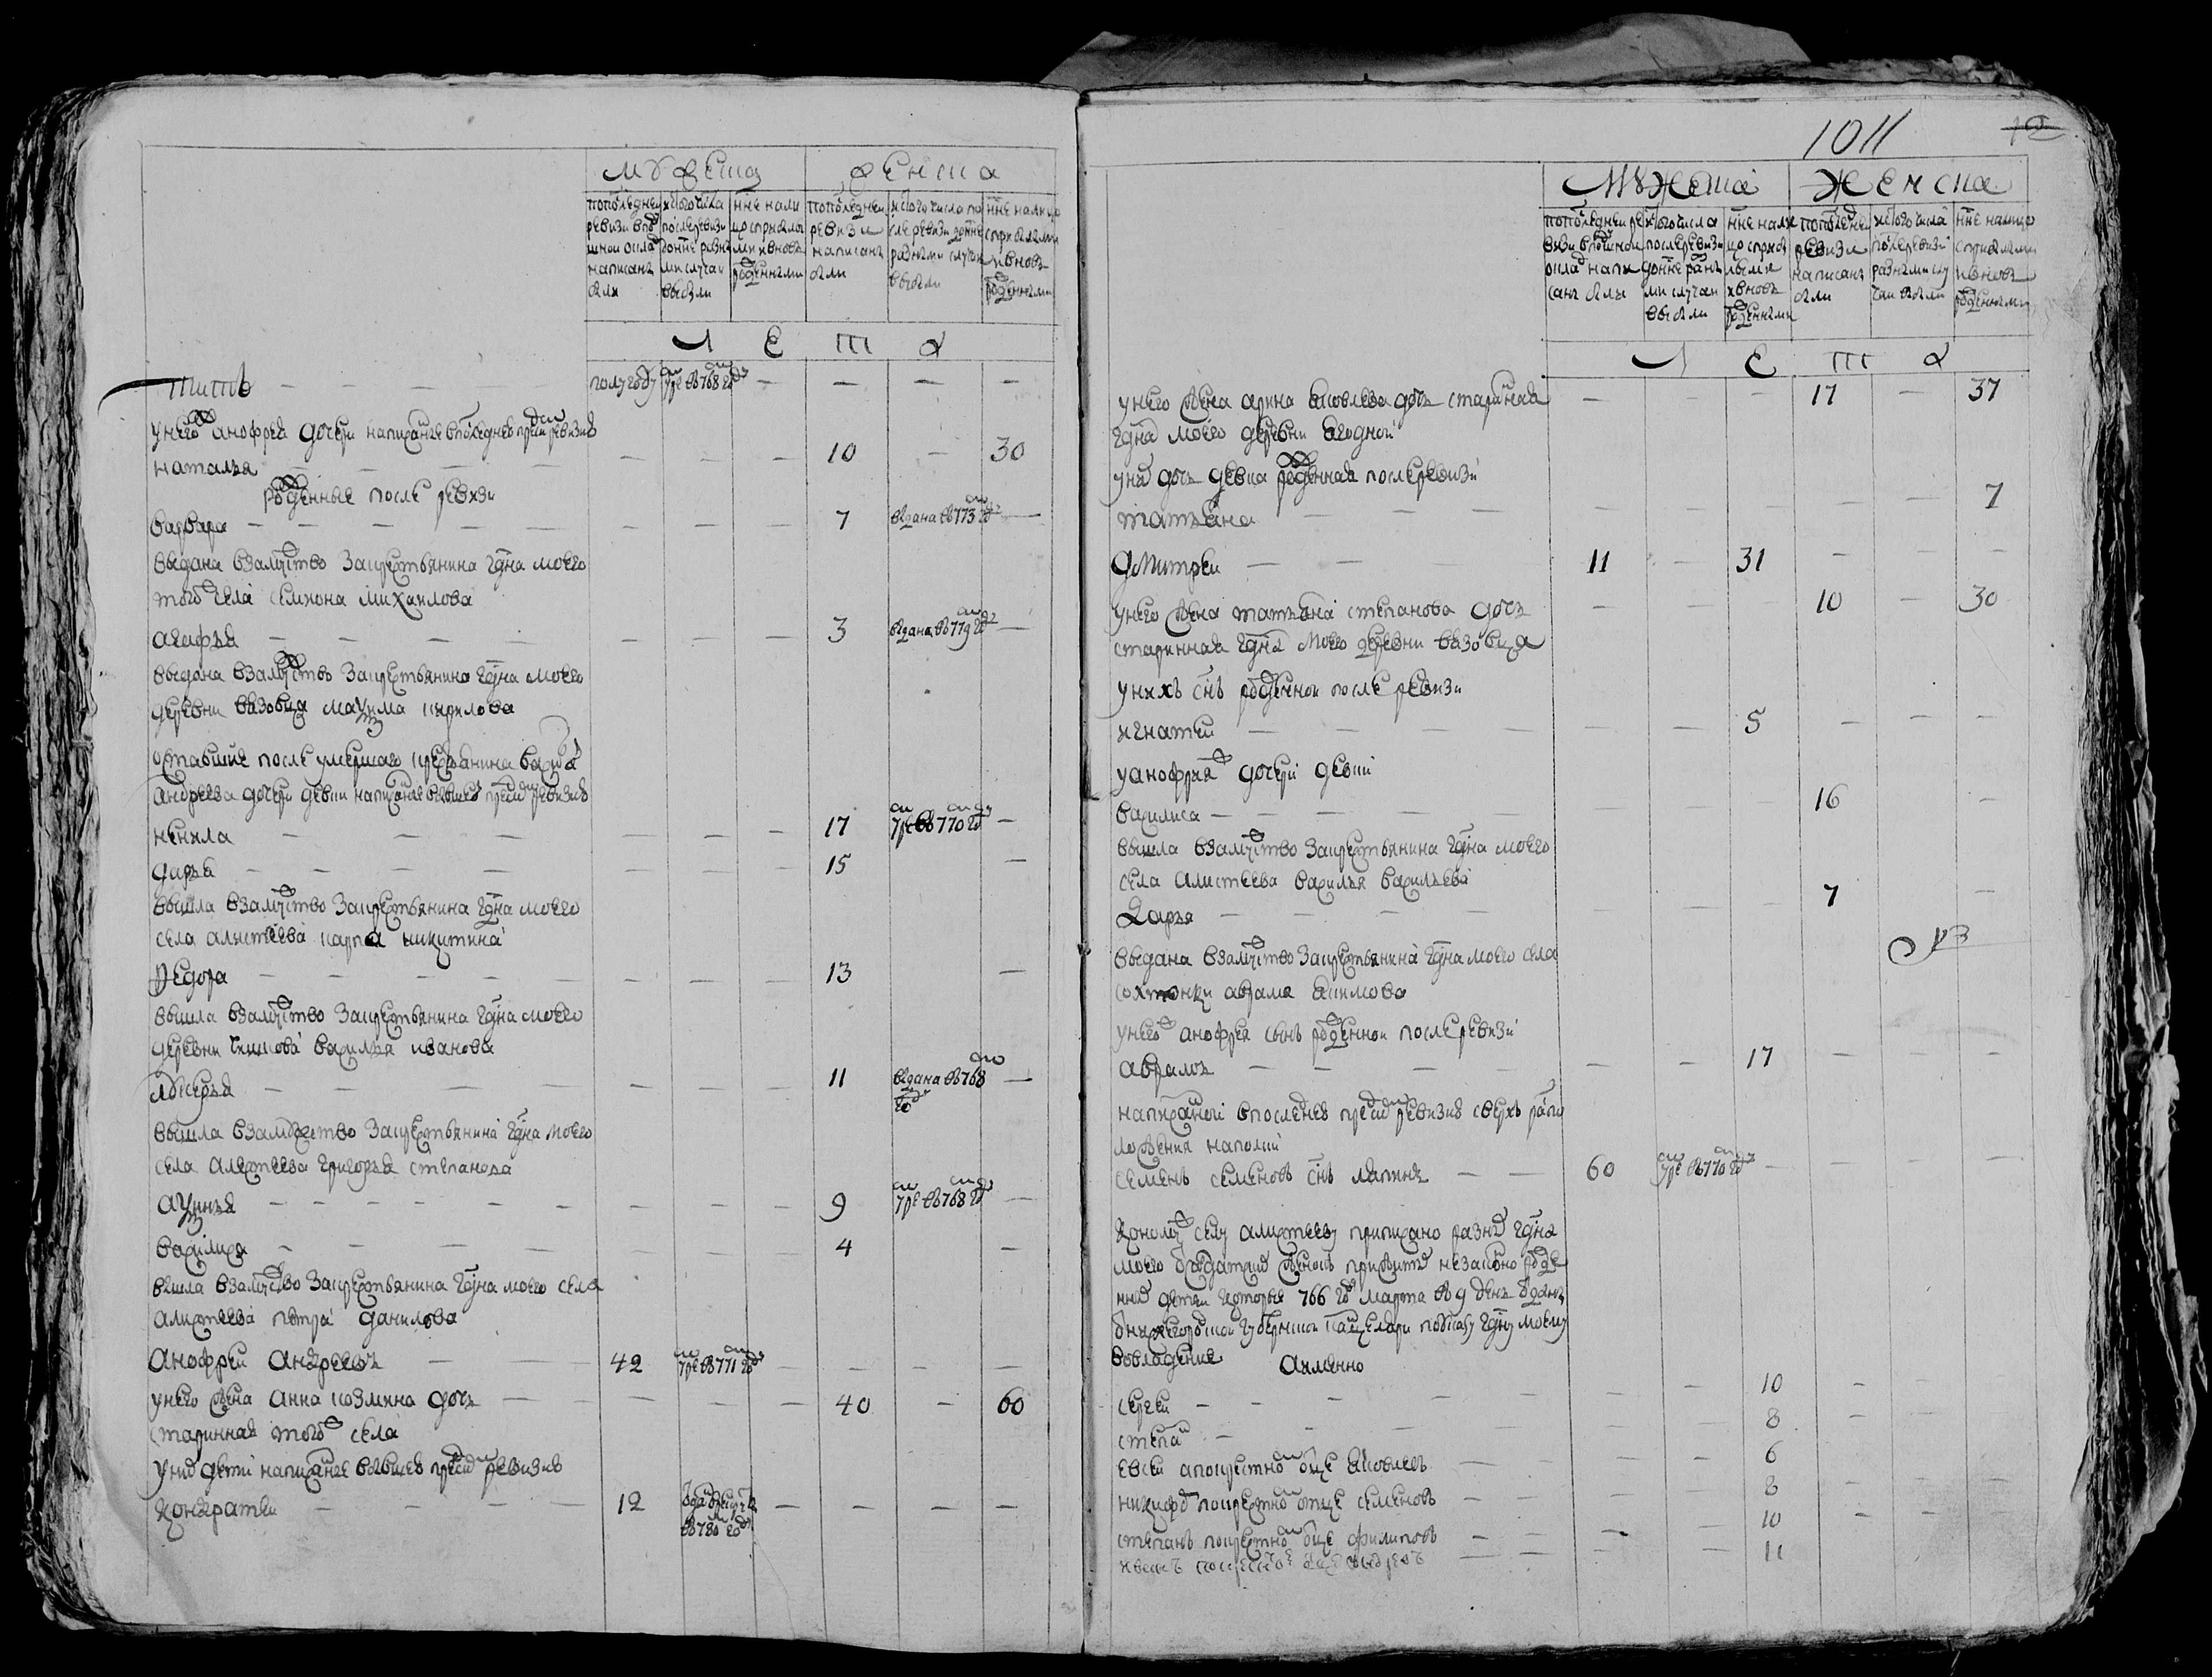 мужеска женска
по последней ревизии в подушной оклад написаны были
ис того числа после ревизии до ныне разными случаи выбыли
ныне налицо с прибылыми и вновь рожденными
по последней ревизии написаны были
ис того числа после ревизии до ныне разными случаи выбыли
ныне налицо с прибылыми и вновь рожденными
Л е т а
титъ — полугоду умре въ 768 году — — — —
у него анофрея дочери написанные в последней пред сим ревизие
наталья — — — 10 — 30
рожденные после ревизи
варвара — — — 7 выдана въ 773 году —
выдана взамужство за крестьянина гдна моего
того ж села семиона михаилова
агафья — — — 3 выдана въ 779 году —
выдана взамужство за крестьянина гдна моего
деревни вязовца максима кирилова
оставшие после умершаго крестьянина
андреева дочери девки написанные в бывшей пред сим ревизие
ненила — — — 17 умре въ 770 году —
дарья — — — 15 —
вышла взамужство за крестьянина гдна моего
села алистеева карпа никитина
федора — — — 13 —
вышла взамужство за крестьянина гдна моего
деревни василья иванова
лукерья — — — 11 выдана въ 768 году —
вышла взамужство за крестьянина гдна моего
села алистеева григорья степанова
аксинья — — — 9 умре въ 768 году —
василиса — — — 4 —
вышла взамужство за крестьянина гдна моего села
алистеева петра данилова
анофрей андреевъ 42 умре въ 771 году — — — —
у него жена анна козмина дочь — — — 40 — 60
старинная того ж села
у них дети написанные в бывшей пред сим ревизие
кондратей 12 отдан в рекруты въ 780 году — — — —
1011
12
Мужеска Женска
по последней ревизии в подушной оклад написаны были
ис того числа после ревизии до ныне разными случаи выбыли
ныне налицо с прибылыми и вновь рожденными
по последней ревизии написаны были
ис того числа после ревизии разными случаи выбыли
ныне налицо с прибылыми и вновь рожденными
Л е т а
у него жена арина яковлева дочь старинная — — — 17 — 37
гдна моего деревни ягодной
у них дочь девка рожденная после ревизи
татьяна — — — — — 7
Дмитрей 11 — 31 — — —
у него жена татьяна степанова дочь — — — 10 — 30
старинная гдна моего деревни вязовца
у них снъ рожденной после ревизи
игнатей — — 5 — — —
у анофрея ж дочери девки
василиса — — — 16 —
вышла взамужство за крестьянина гдна моего
села алистеева василья васильева
Дарья — — — 7 —
выдана взамужство за крестьянина гдна моего села
абрама акимова
у него ж анофрея сынъ рожденной после ревизи
абрамъ — — 17 — — —
написанной в последней пред сим ревизие сверхъ распи
ложения на полки
семенъ семеновъ снъ лапинъ 60 умре въ 770 году — — — —
К оному ж селу алистееву приписано разных гдна
моего солдатских женокъ прижитых незаконо рожде
нных детей которые 766 году марта въ 9 день отданы
от нижегородской губернской канцеляри по указу гдну моему
во владение а имянно
сергей — — 10 — — —
степан — — 8 — — —
евсей а по крестном отце яковлевъ — — 6
никифор по крестном отце семеновъ — — 8 — — —
степанъ по крестном отце филиповъ — — 10 — — —
иванъ по крестном отце — — 11